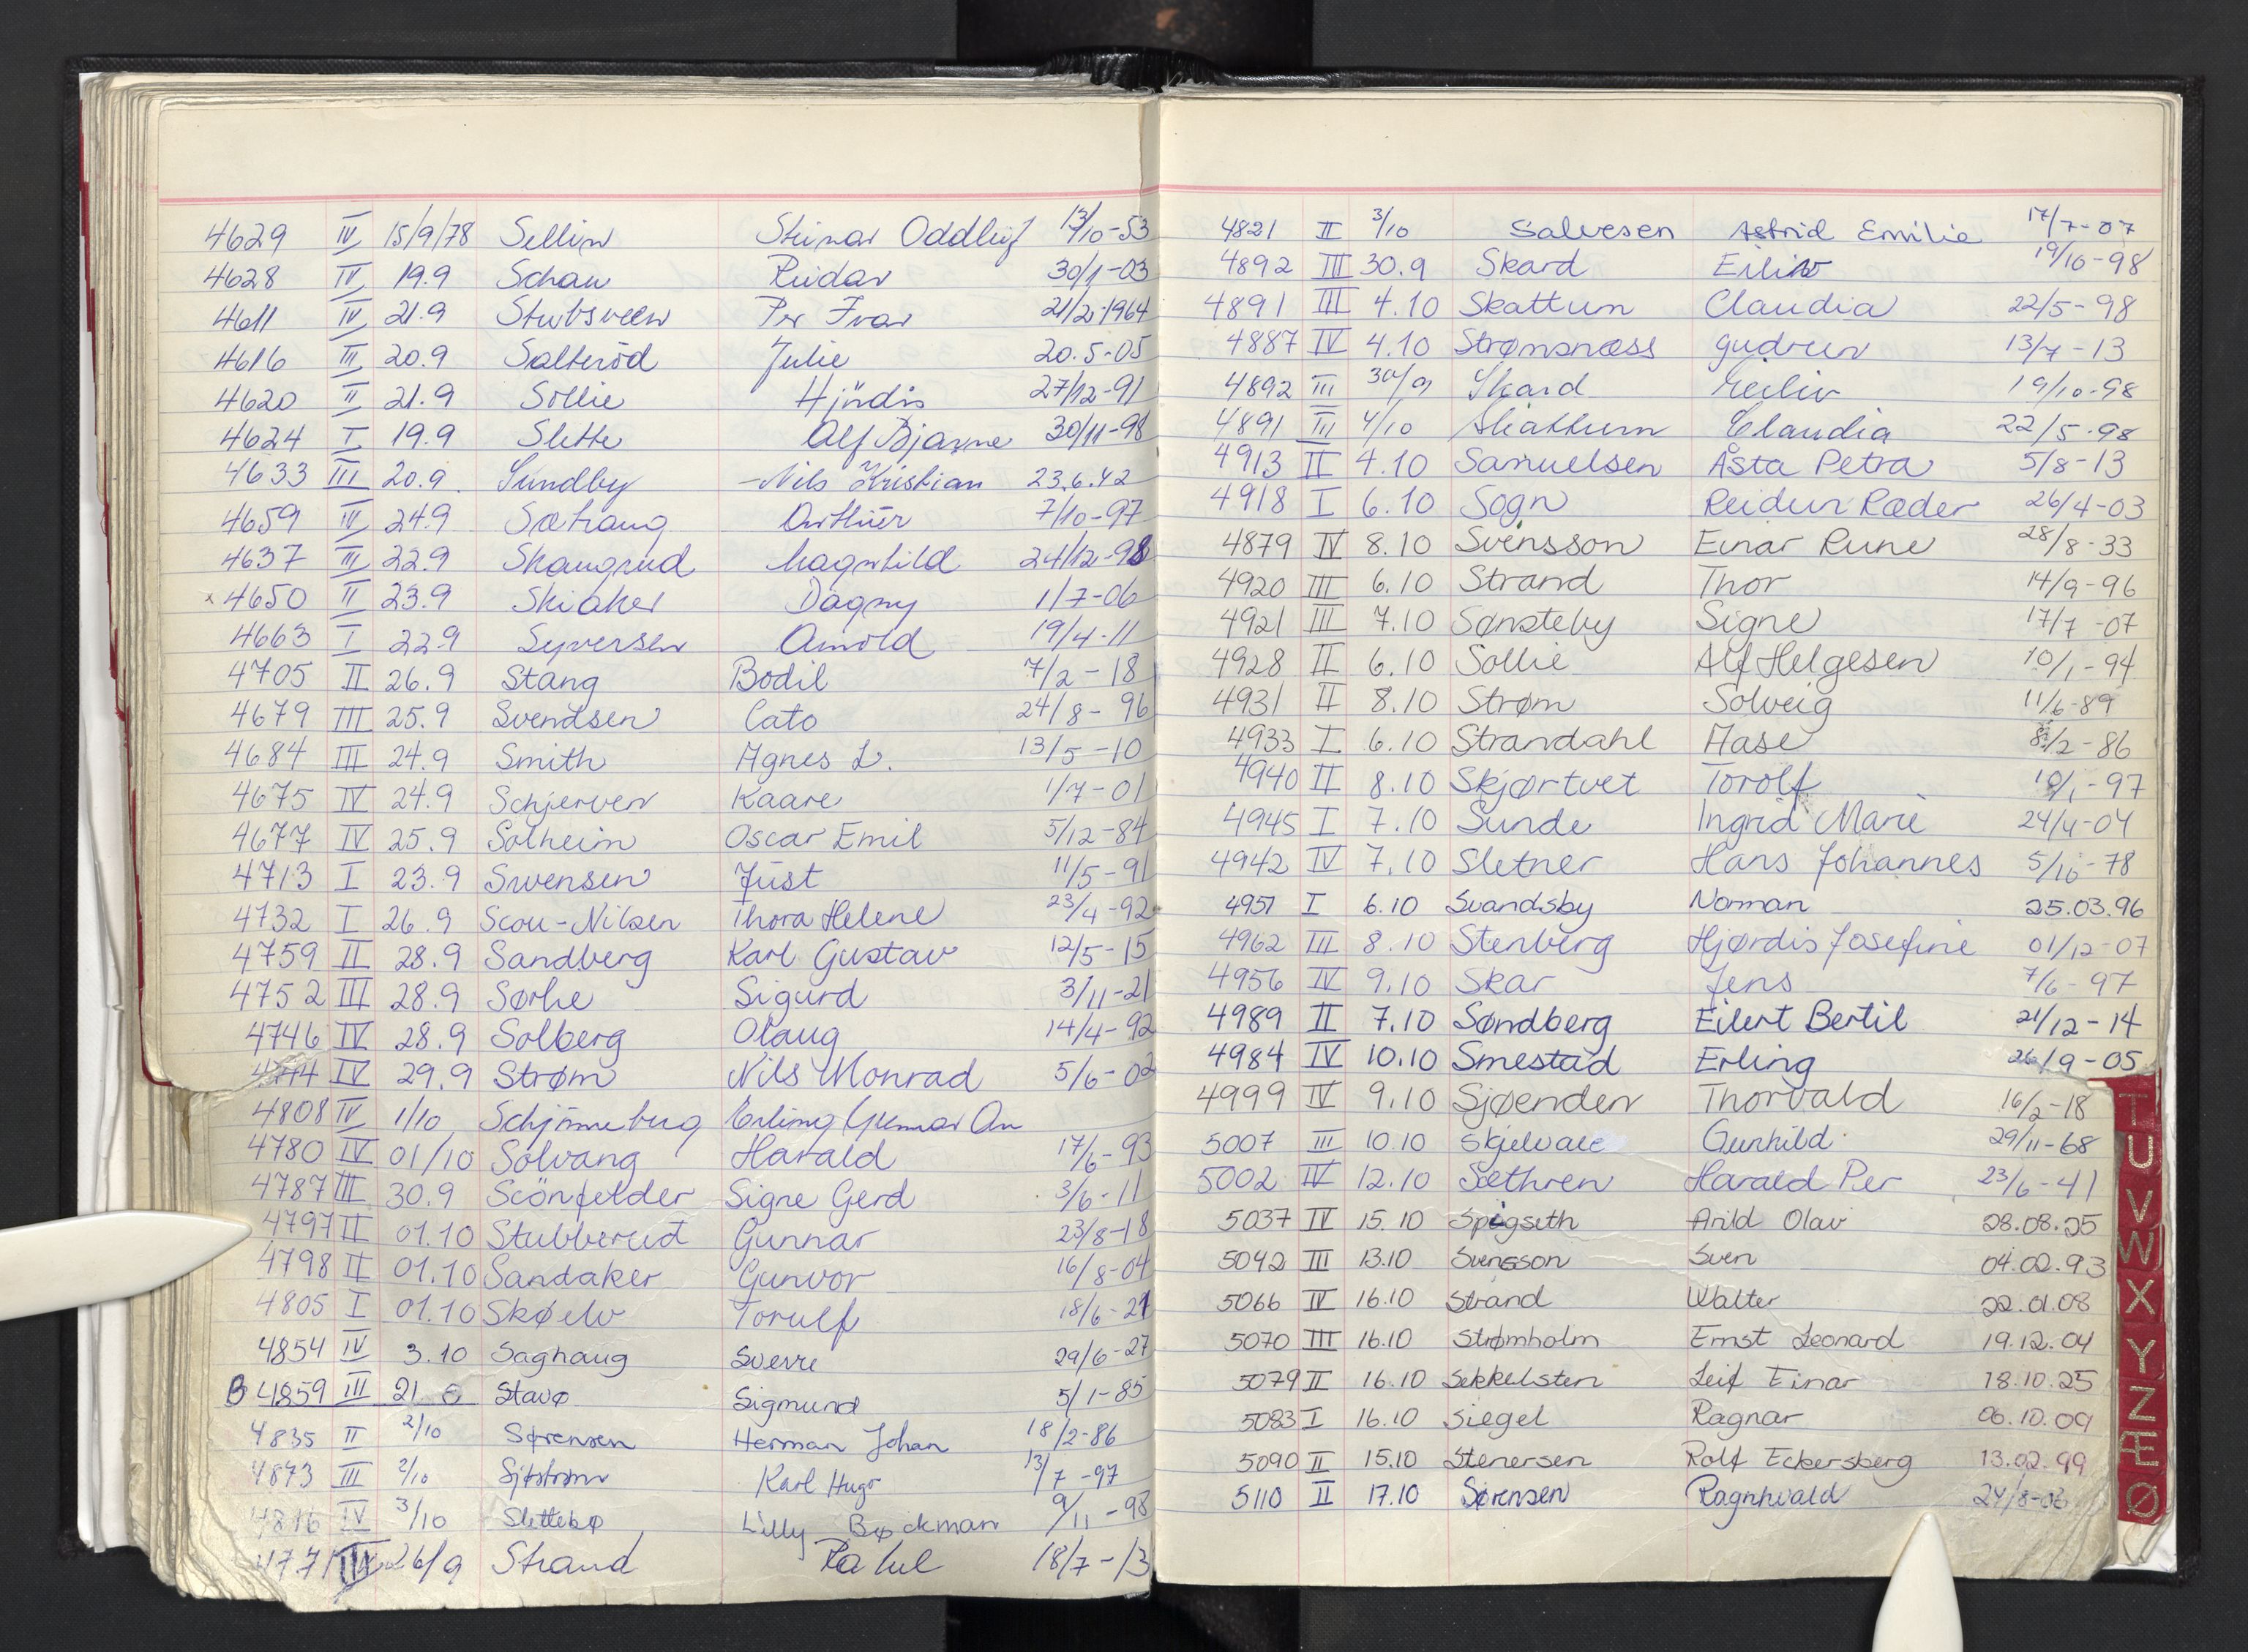 4629 IV 15/9/78 Sellin Steinar Oddleif 13/10-53
4628 IV 19.9 Schau Reidar 30/1-03
4611 IV 21.9 Stubsveen Per Ivar 21/2-1964
4616 III 20.9 Salteröd Julie 20.5-05
4620 II 21.9 Sollie Hjördis 27/12-91
4624 I 19.9 Slette Alf Bjarne 30/11-98
4633 III 20.9 Sundby Nils Kristian 23.6.42
4659 IV 24.9 Sætrang Arthur 7/10-97
4637 III 22.9 Skaugrud Magnhild 24/12-98
x 4650 II 23.9 Skiaker Dagny 1/7-06
4663 I 22.9 Syversen Arnold 19/4-11
4705 II 26.9 Stang Bodil 7/2-18
4679 III 25.9 Svendsen Cato 24/8-96
4684 III 24.9 Smith Agnes L. 13/5-10
4675 IV 24.9 Schjerven Kaare 1/7-01
4677 IV 25.9 Solheim Oscar Emil 5/12-84
4713 I 23.9 Swensen Just 11/5-91
4732 I 26.9 Scou-Nilsen Thora Helene 23/4-92
4759 II 28.9 Sandberg Karl Gustav 12/5-15
4752 III 28.9 Sørlie Sigurd 3/11-21
4746 IV 28.9 Solberg Olaug 14/4-92
4744 IV 29.9 Strøm Nils Monrad 5/6-02
4808 IV 1/10 Erling Gunnar
4780 IV 01/10 Solvang Harald 17/6-93
4787 III 30.9 Scönfelder Signe Gerd 3/6-11
4797 II 01.10 Stubberud Gunnar 23/8-18
4798 II 01.10 Sandaker Gunvor 16/8-04
4805 I 01.10 Skøelv Torulf 18/6-21
4854 IV 3.10 Saghaug Sverre 29/6-27
B 4859 III 21 Stavø Sigmund 5/1-85
4835 II 2/10 Sørensen Herman Johan 18/2-86
4873 III 2/10 Sjøstrøm Karl Hugo 13/7-97
4816 IV 3/10 Slettebø Lilly Bockman 9/11-98
4771 26/9 Strand 18/7-13
4821 II 3/10 Salvesen Astrid Emilie 17/7-07
4892 III 30.9 Skard Eiliv 19/10-98
4891 III 4.10 Skattum Claudia 22/5-98
4887 IV 4.10 Strømsnæss Gudrun 13/7-13
4892 III 30/9 Skard Eiliv 19/10-98
4891 III 4/10 Skattum Claudia 22/5-98
4913 II 4.10 Samuelsen Åsta Petra 5/8-13
4918 I 6.10 Sogn Reidun Ræder 26/4-03
4879 IV 8.10 Svensson Einar Rune 28/8-33
4920 III 6.10 Strand Thor 14/9-96
4921 III 7.10 Sønsteby Signe 17/7-07
4928 II 6.10 Sollie Alf Helgesen 10/1-94
4931 II 8.10 Strøm Solveig 11/6-89
4933 I 6.10 Strandahl Aase 8/2-86
4940 II 8.10 Skjørtvet Torolf 10/1-97
4945 I 7.10 Sunde Ingrid Marie 24/4-04
4942 IV 7.10 Sletner Hans Johannes 5/10-78
4951 I 6.10 Svandsby Norman 25.03.96
4962 III 8.10 Stenberg Hjørdis Josefine 01/12-07
4956 IV 9.10 Skar Jens 7/6-97
4989 II 7.10 Søndberg Eilert Bertil 21/12-14
4984 IV 10.10 Smestad Erling 26/9-05
4999 IV 9.10 Sjøenden Thorvald 16/2-18
5007 III 10.10 Gunhild 29/11-68
5002 IV 12.10 Sæthren Harald Per 23/6-41
5037 IV 15.10 Spigseth Arild Olav 28.08.25
5042 III 13.10 Svensson Sven 04.02.93
5066 IV 16.10 Strand Walter 22.01.08
5070 III 16.10 Strømholm Ernst Leonard 19.12.04
5079 II 16.10 Sekkelsten Leif Einar 18.10.25
5083 I 16.10 Siegel Ragnar 06.10.09
5090 II 15.10 Stenersen Rolf Eckersberg 13.02.99
5110 II 17.10 Sørensen Ragnhvald 24/8-03
T
U
V
W
X
Y
Z
Æ
Ø